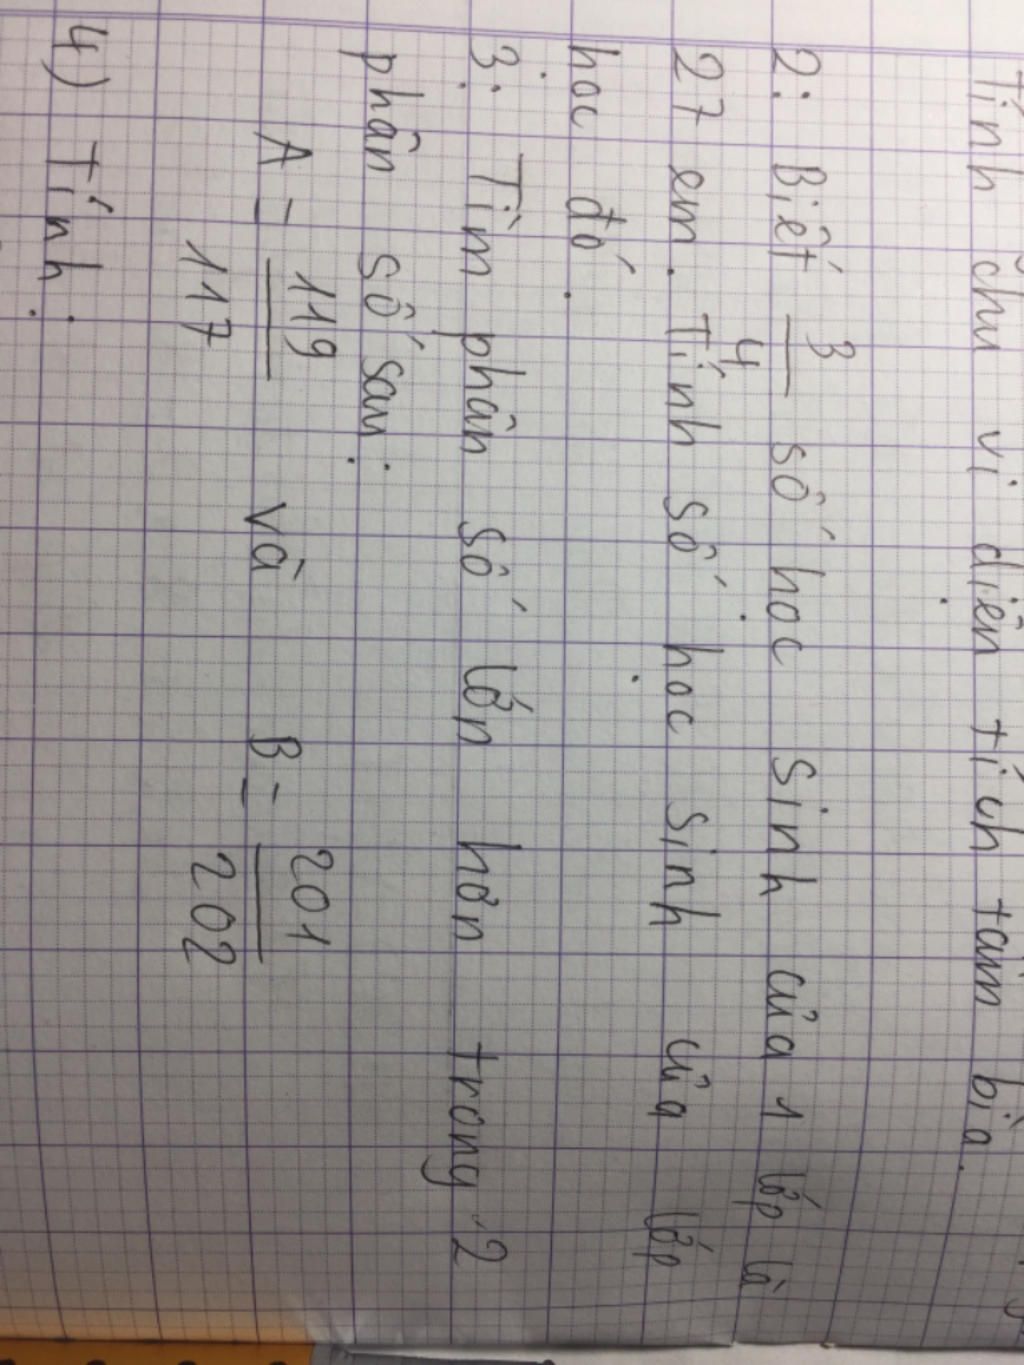 Tính chu vi diện tích tấm bìa.
2: Biết 3/4 số học sinh của 1 lớp là
27 em. Tính số học sinh của lớp
học đó.
3: Tìm phân số lớn hơn trong 2
phân số sau:
A = 119/117 và B = 201/202
4) Tính: